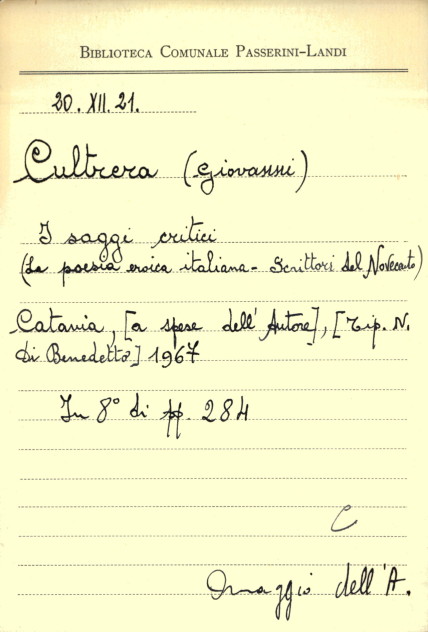 BIBLIOTECA COMUNALE PASSERINI-LANDI
20. XII. 21.
Cultrera (Giovanni)
I saggi critici
(La poesia eroica italiana - Scrittori del Novecento)
Catania, [a spese dell'Autore], [Tip. N.
di Benedetto] 1967
In 8° di pp. 284
C
Omaggio dell'A.